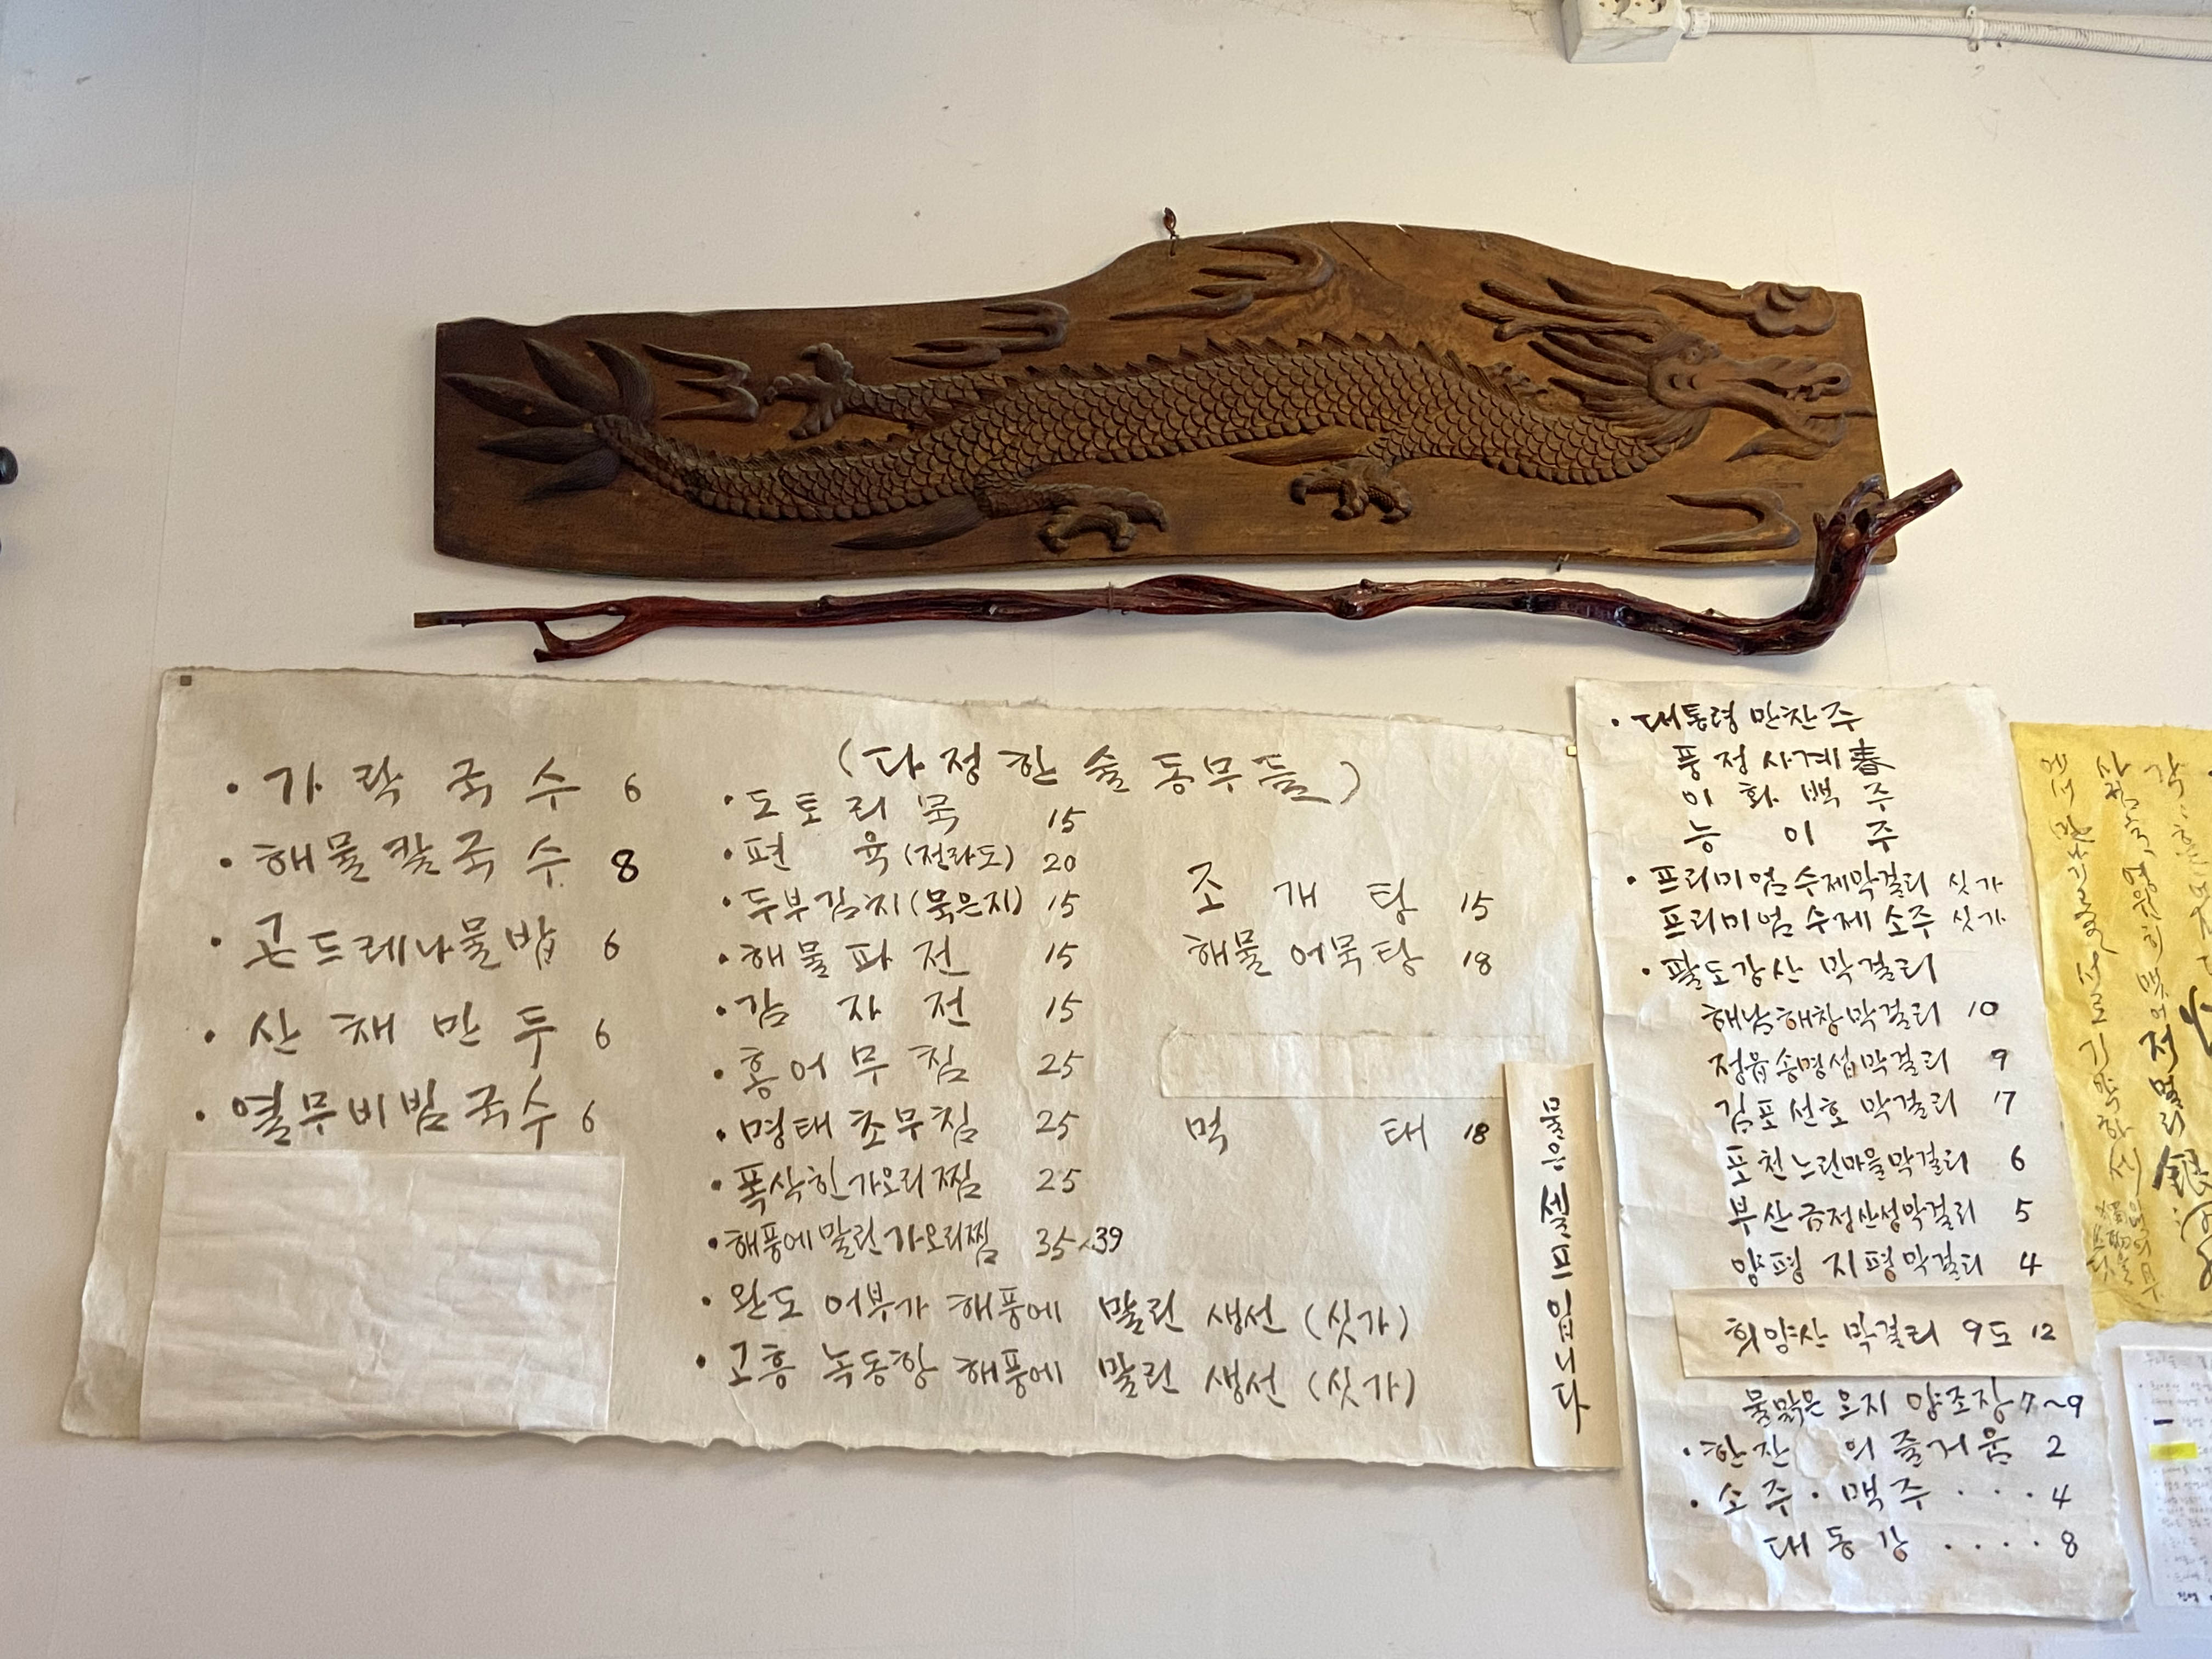 · 가락국수 6
· 해물칼국수 8
· 곤드레나물밥 6
· 산채만두 6
· 열무비빔국수 6
(다정한 술동무들)
· 도토리묵 15
· 편육(전라도) 20
· 두부김치(묵은지) 15
· 해물파전 15
· 감자전 15
· 홍어무침 25
· 명태초무침 25
· 폭삭힌가오리찜 25
· 해풍에말린가오리찜 35~39
· 완도 어부가 해풍에 말린 생선 (싯가)
· 고흥 녹동항 해풍에 말린 생선 (싯가)
조개탕 15
해물 어묵탕 18
먹태 18
물은 셀프입니다
· 대통령 만찬주
풍정사계 春
이화백주
능이주
· 프리미엄수제막걸리 싯가
프리미엄 수제 소주 싯가
· 팔도강산 막걸리
해남해창막걸리 10
정읍송명섭막걸리 9
김포선호 막걸리 17
포천느린마을막걸리 6
부산금정산성막걸리 5
양평 지평막걸리 4
희양산 막걸리 9도 12
물맑은 은지 양조장 7~9
· 한잔의 즐거움 2
· 소주 · 맥주 · · · 4
대동강 · · · · 8